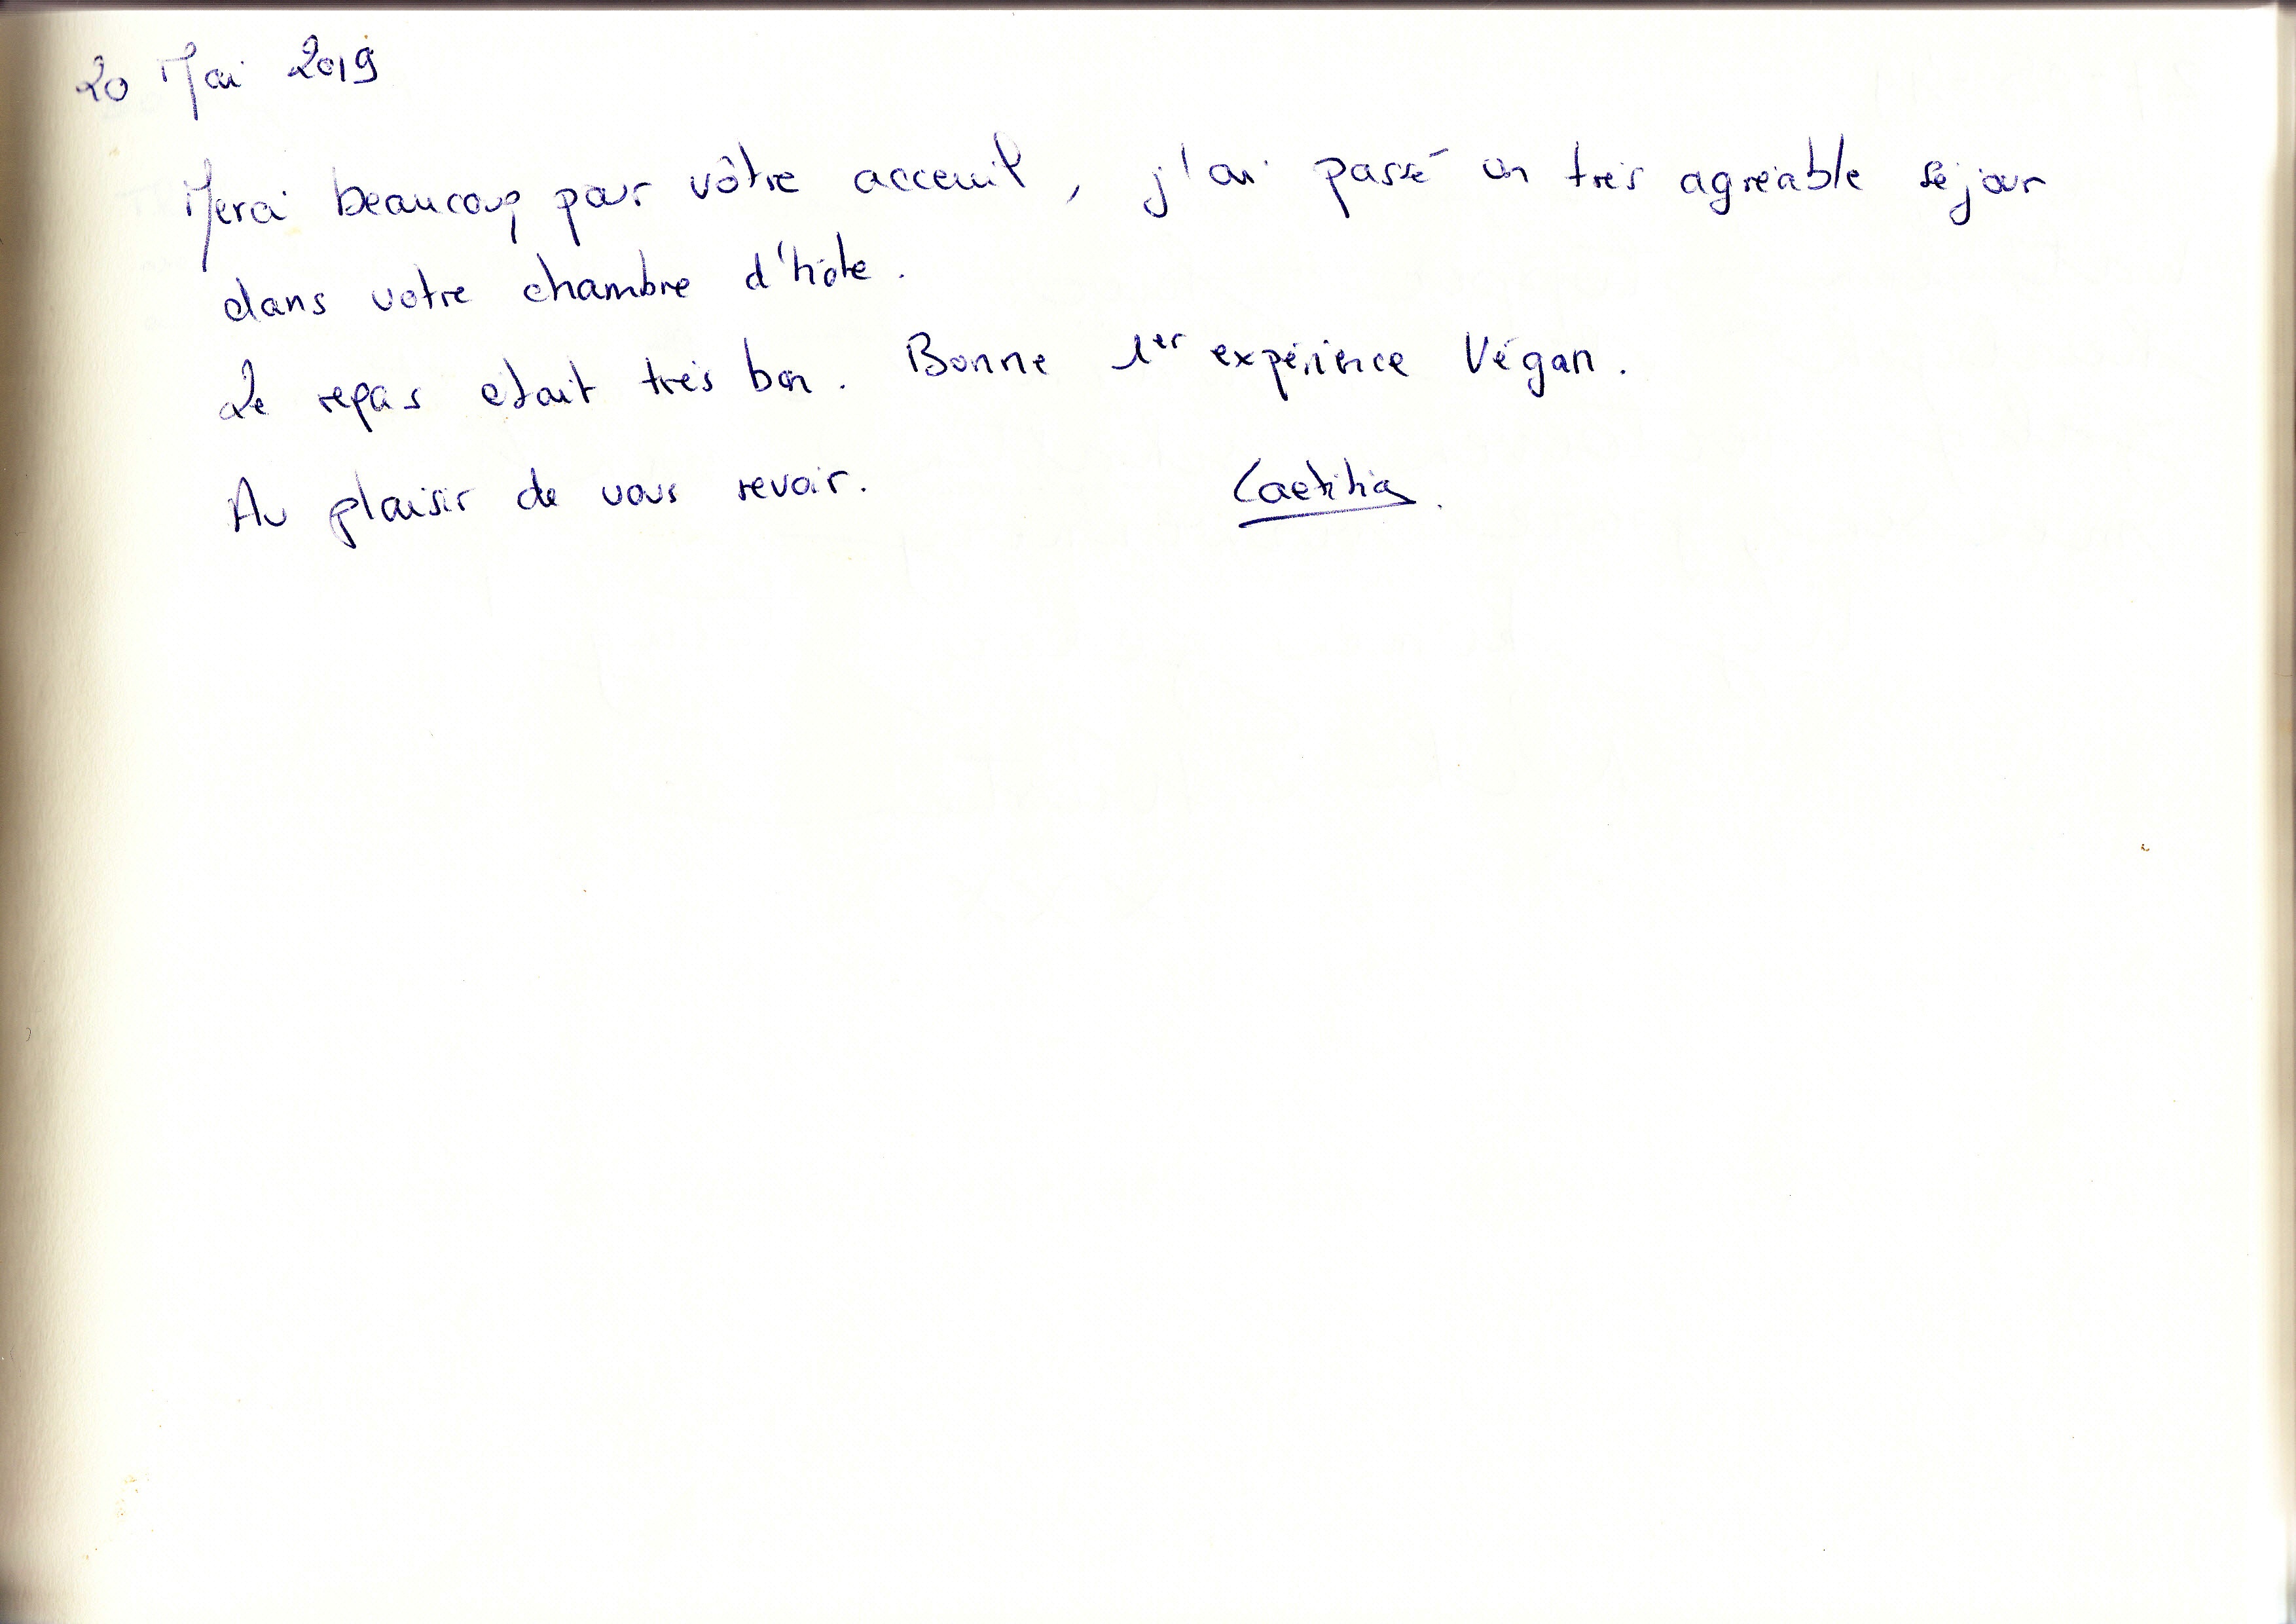 20 Mai 2019
Merci beaucoup pour vôtre acceuil, j'ai passé un très agréable séjour
dans votre chambre d'hôte.
Le repas était très bon. Bonne 1er expérience Végan.
Au plaisir de vous revoir. Laetitia.